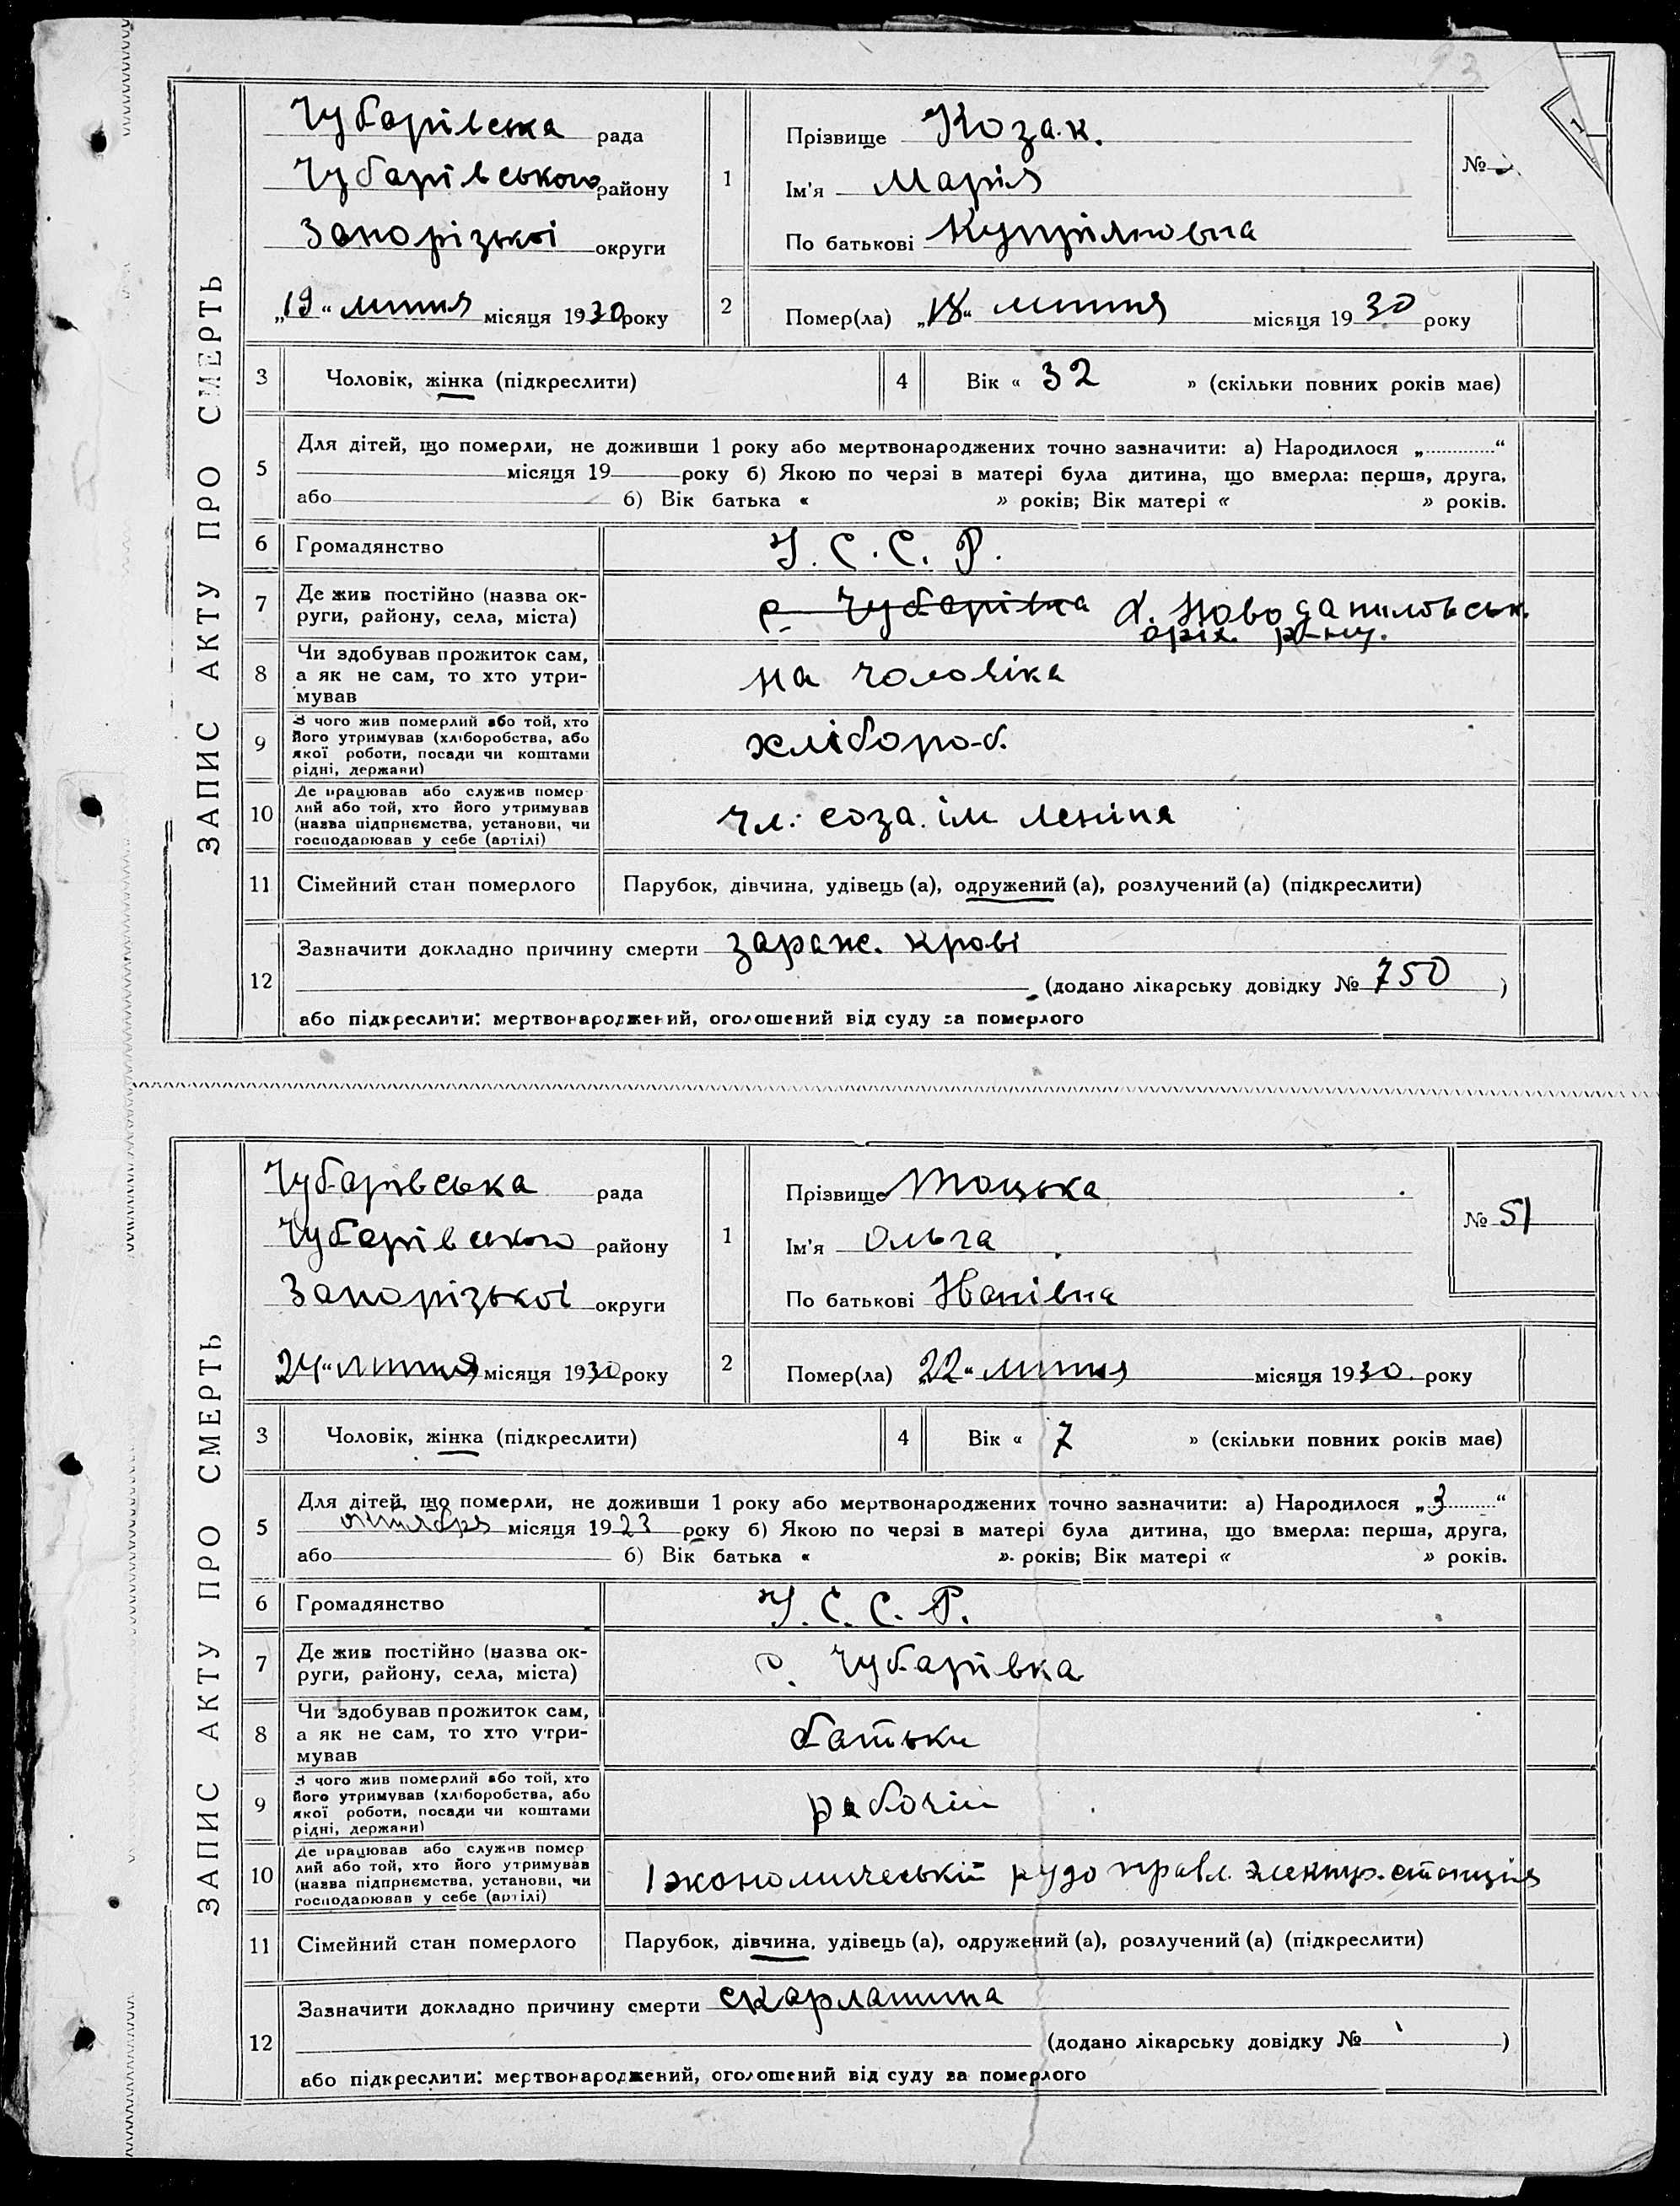 23
ЗАПИС АКТУ ПРО СМЕРТЬ
Чубарівська рада
Чубарівського району
Запорізької округи
„19“ липня місяця 1930 року
1
Прізвище Козак.
Ім'я Марія
По батькові Купріяновна
№
2
Помер(ла) „18“ липня місяця 1930 року
3
Чоловік, жінка (підкреслити)
4
Вік « 32 » (скільки повних років має)
5
Для дітей, що померли, не доживши 1 року або мертвонароджених точно зазначити: а) Народилося „ “
місяця 19 року б) Якою по черзі в матері була дитина, що вмерла: перша, друга,
або б) Вік батька « » років; Вік матері « » років.
6
Громадянство
У. С. С. Р.
7
Де жив постійно (назва ок-
руги, району, села, міста)
с. Чубарівка х. Новоданиловськ.
оріх. р-ну.
8
Чи здобував прожиток сам,
а як не сам, то хто утри-
мував
на чоловіка
9
З чого жив померлий або той, хто
його утримував (хліборобства, або
якої роботи, посади чи коштами
рідні, держави)
хліборо-б.
10
Де працював або служив помер-
лий або той, хто його утримував
(назва підприємства, установи, чи
господарював у себе (артілі)
чл. соза. ім леніна
11
Сімейний стан померлого
Парубок, дівчина, удівець (а), одружений (а), розлучений (а) (підкреслити)
12
Зазначити докладно причину смерти зараж. крові
(додано лікарську довідку № 750 )
або підкреслити: мертвонароджений, оголошений від суду за померлого
ЗАПИС АКТУ ПРО СМЕРТЬ
Чубарівська рада
Чубарівського району
Запорізької округи
24“ липня місяця 1930 року
1
Прізвище Тоцька
Ім'я Ольга
По батькові Іванівна
№ 51
2
Помер(ла) 22“ липня місяця 1930. року
3
Чоловік, жінка (підкреслити)
4
Вік « 7 » (скільки повних років має)
5
Для дітей, що померли, не доживши 1 року або мертвонароджених точно зазначити: а) Народилося „3 “
октября місяця 1923 року б) Якою по черзі в матері була дитина, що вмерла: перша, друга,
або б) Вік батька « » років; Вік матері « » років.
6
Громадянство
У. С. С. Р.
7
Де жив постійно (назва ок-
руги, району, села, міста)
с. Чубарівка
8
Чи здобував прожиток сам,
а як не сам, то хто утри-
мував
батьки
9
З чого жив померлий або той, хто
його утримував (хліборобства, або
якої роботи, посади чи коштами
рідні, держави)
рабочій
10
Де працював або служив помер-
лий або той, хто його утримував
(назва підприємства, установи, чи
господарював у себе (артілі)
рудо правл. електр. станция
11
Сімейний стан померлого
Парубок, дівчина, удівець (а), одружений (а), розлучений (а) (підкреслити)
12
Зазначити докладно причину смерти скарлатина
(додано лікарську довідку № )
або підкреслити: мертвонароджений, оголошений від суду за померлого